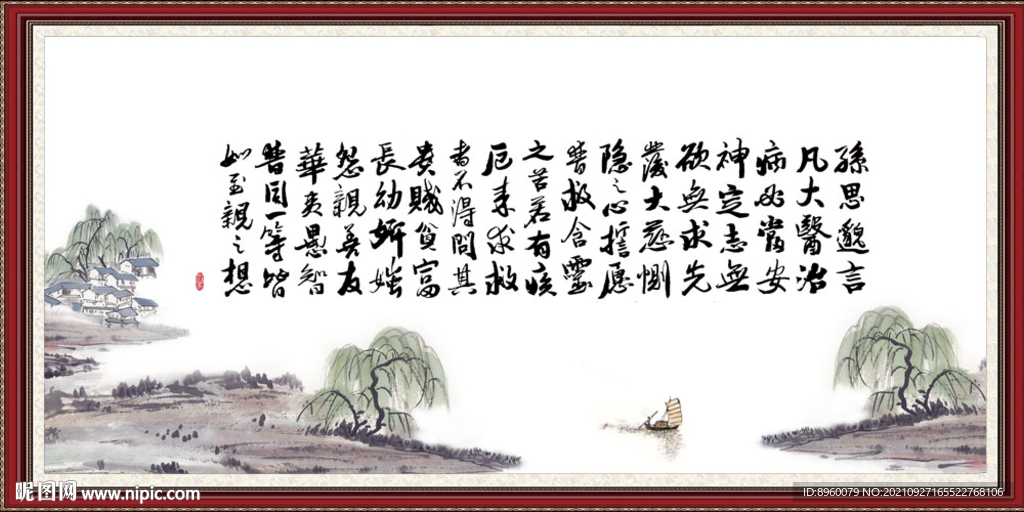 孫思邈言
凡大醫治
病必當安
神定志無
欲無求先
發大慈惻
隐之心誓愿
普救含靈
之苦若有疾
厄来求救
者不得問其
貴賤貧富
長幼妍媸
怨親善友
華夷愚智
普同一等皆
如至親之想
昵图网 www.nipic.com
ID:8960079 NO:20210927165522768106